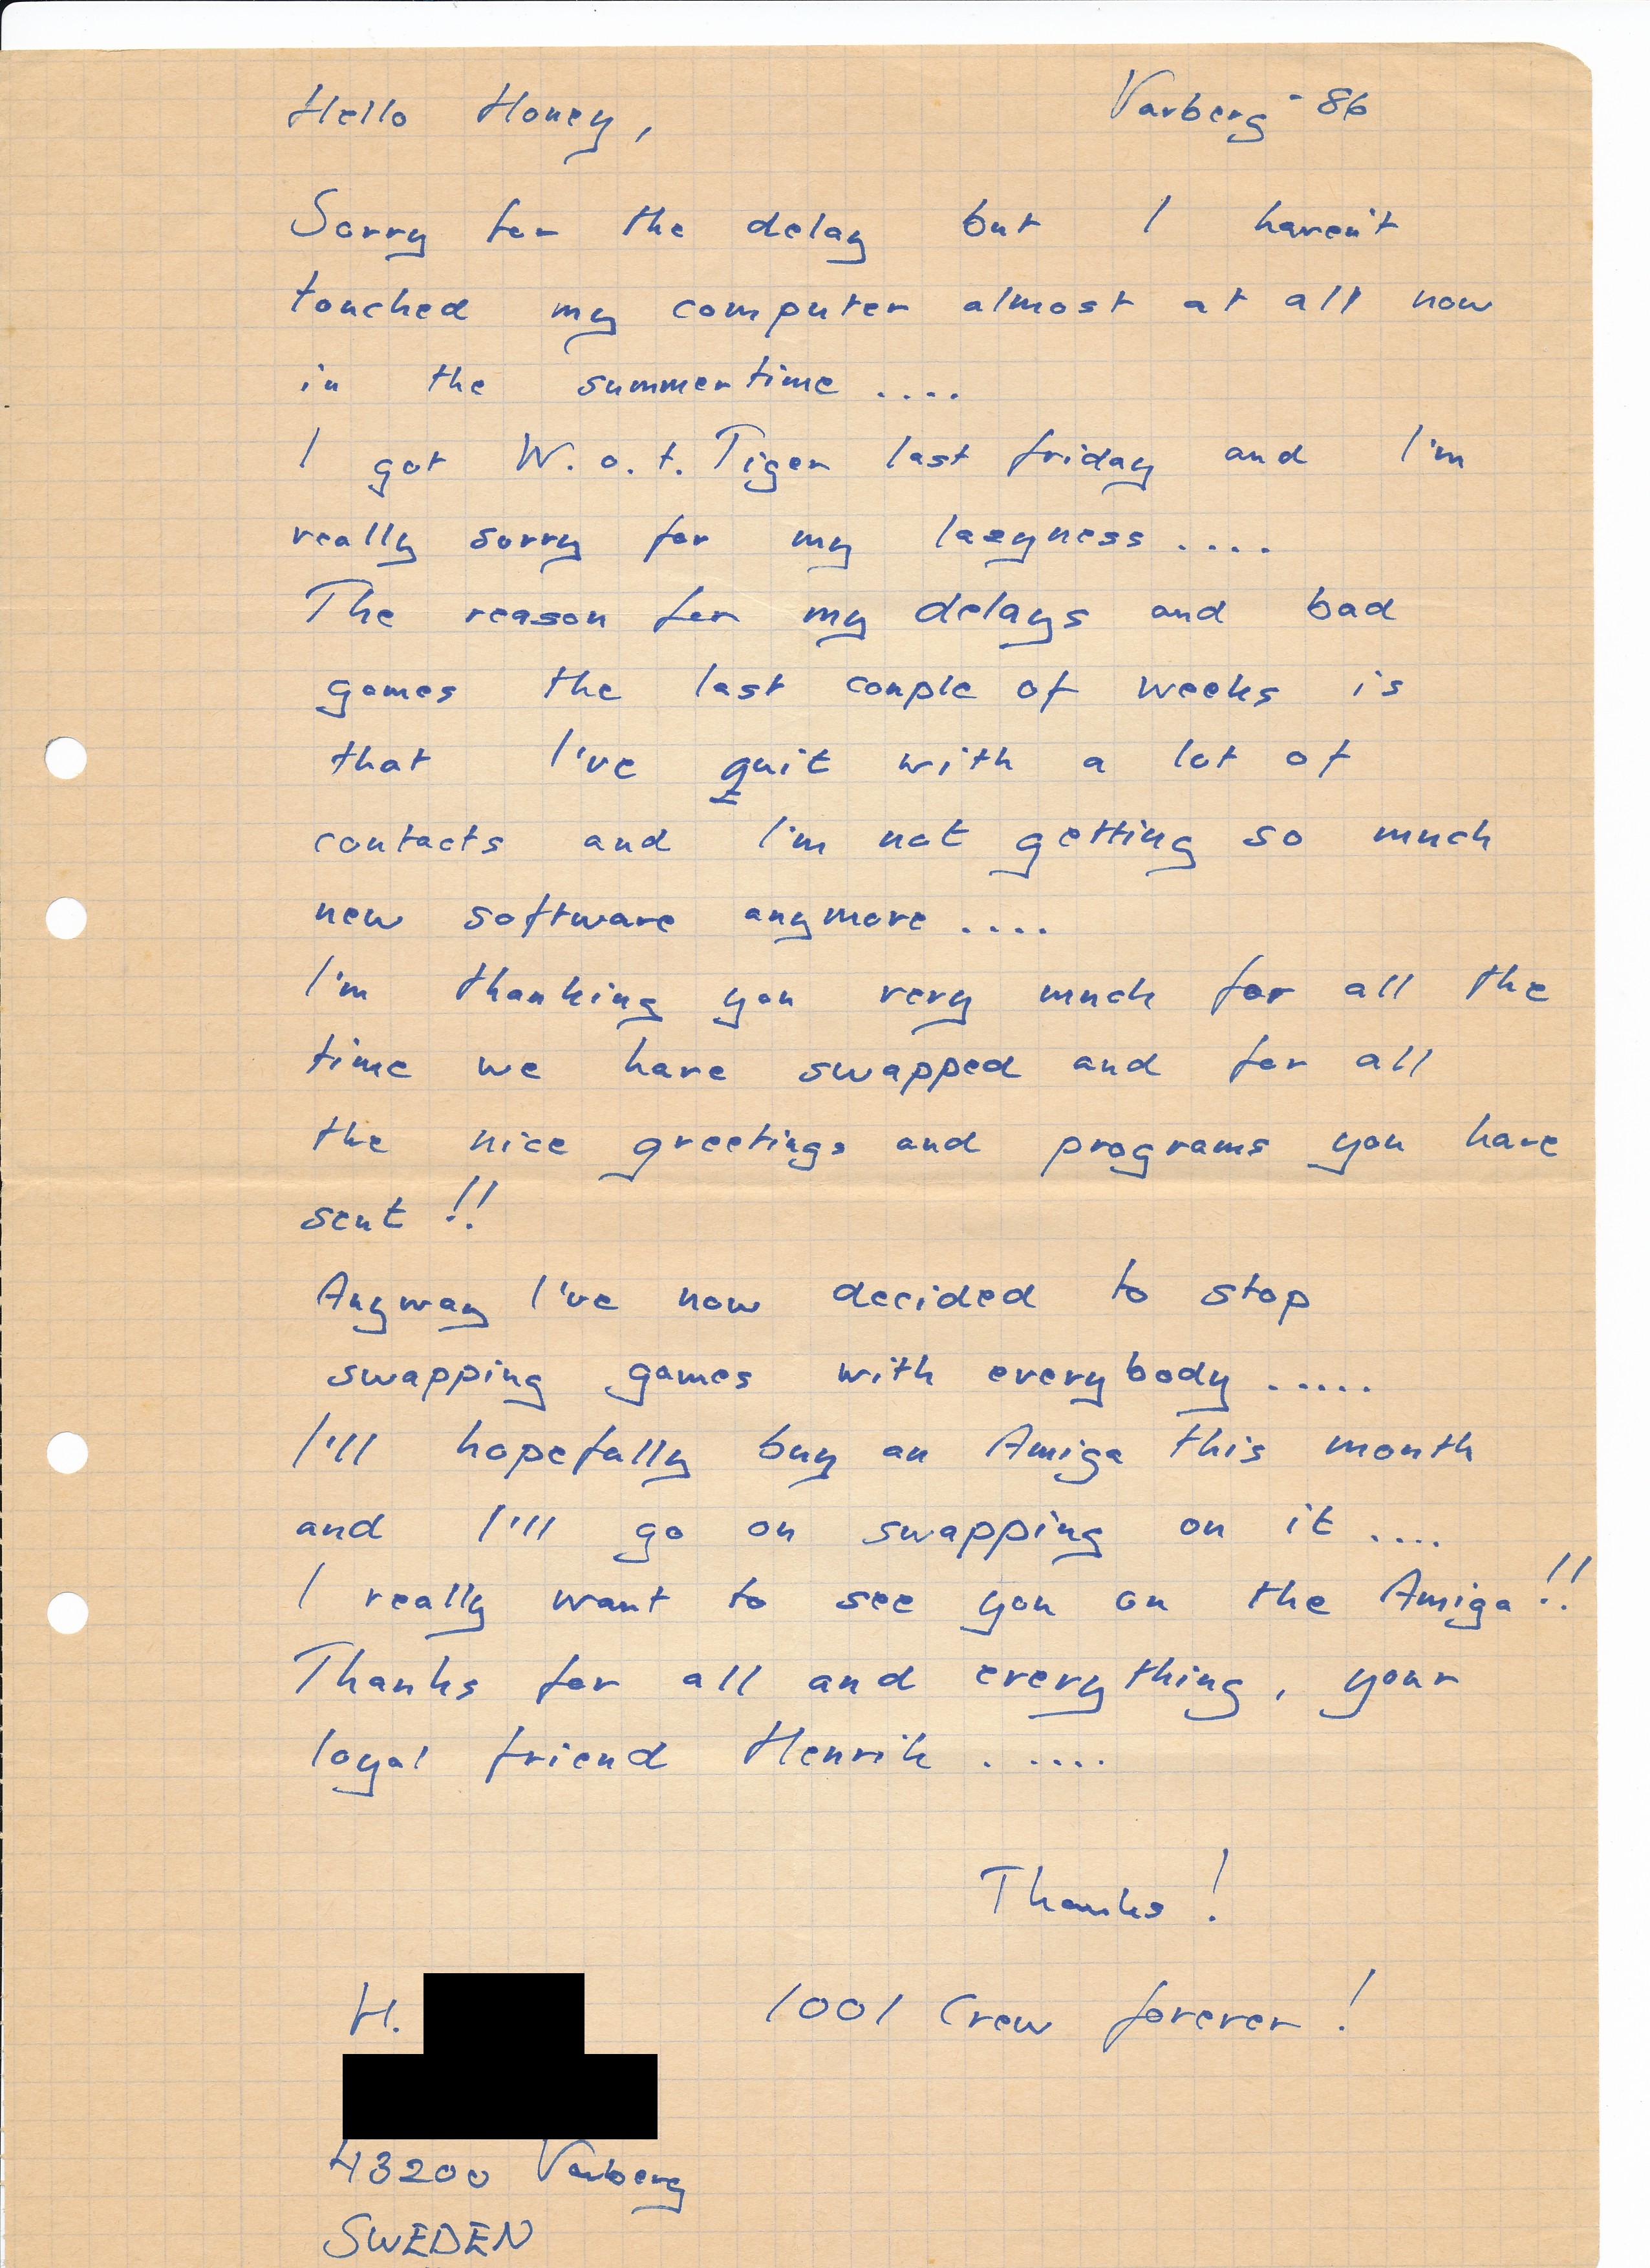 Hello Honey, Varberg -86
Sorry for the delay but I haven't
touched my computer almost at all now
in the summertime ....
I got W. o. t. Tiger last friday and I'm
really sorry for my lazyness ....
The reason for my delays and bad
games the last couple of weeks is
that I've quit with a lot of
contacts and I'm not getting so much
new software anymore ....
I'm thanking you very much for all the
time we have swapped and for all
the nice greetings and programs you have
sent !!
Anyway I've now decided to stop
swapping games with everybody .....
I'll hopefully buy an Amiga this month
and I'll go on swapping on it ....
I really want to see you on the Amiga !!
Thanks for all and everything, your
loyal friend Henrik . ....
Thanks !
H. 1001 Crew forever !
43200 Varberg
SWEDEN